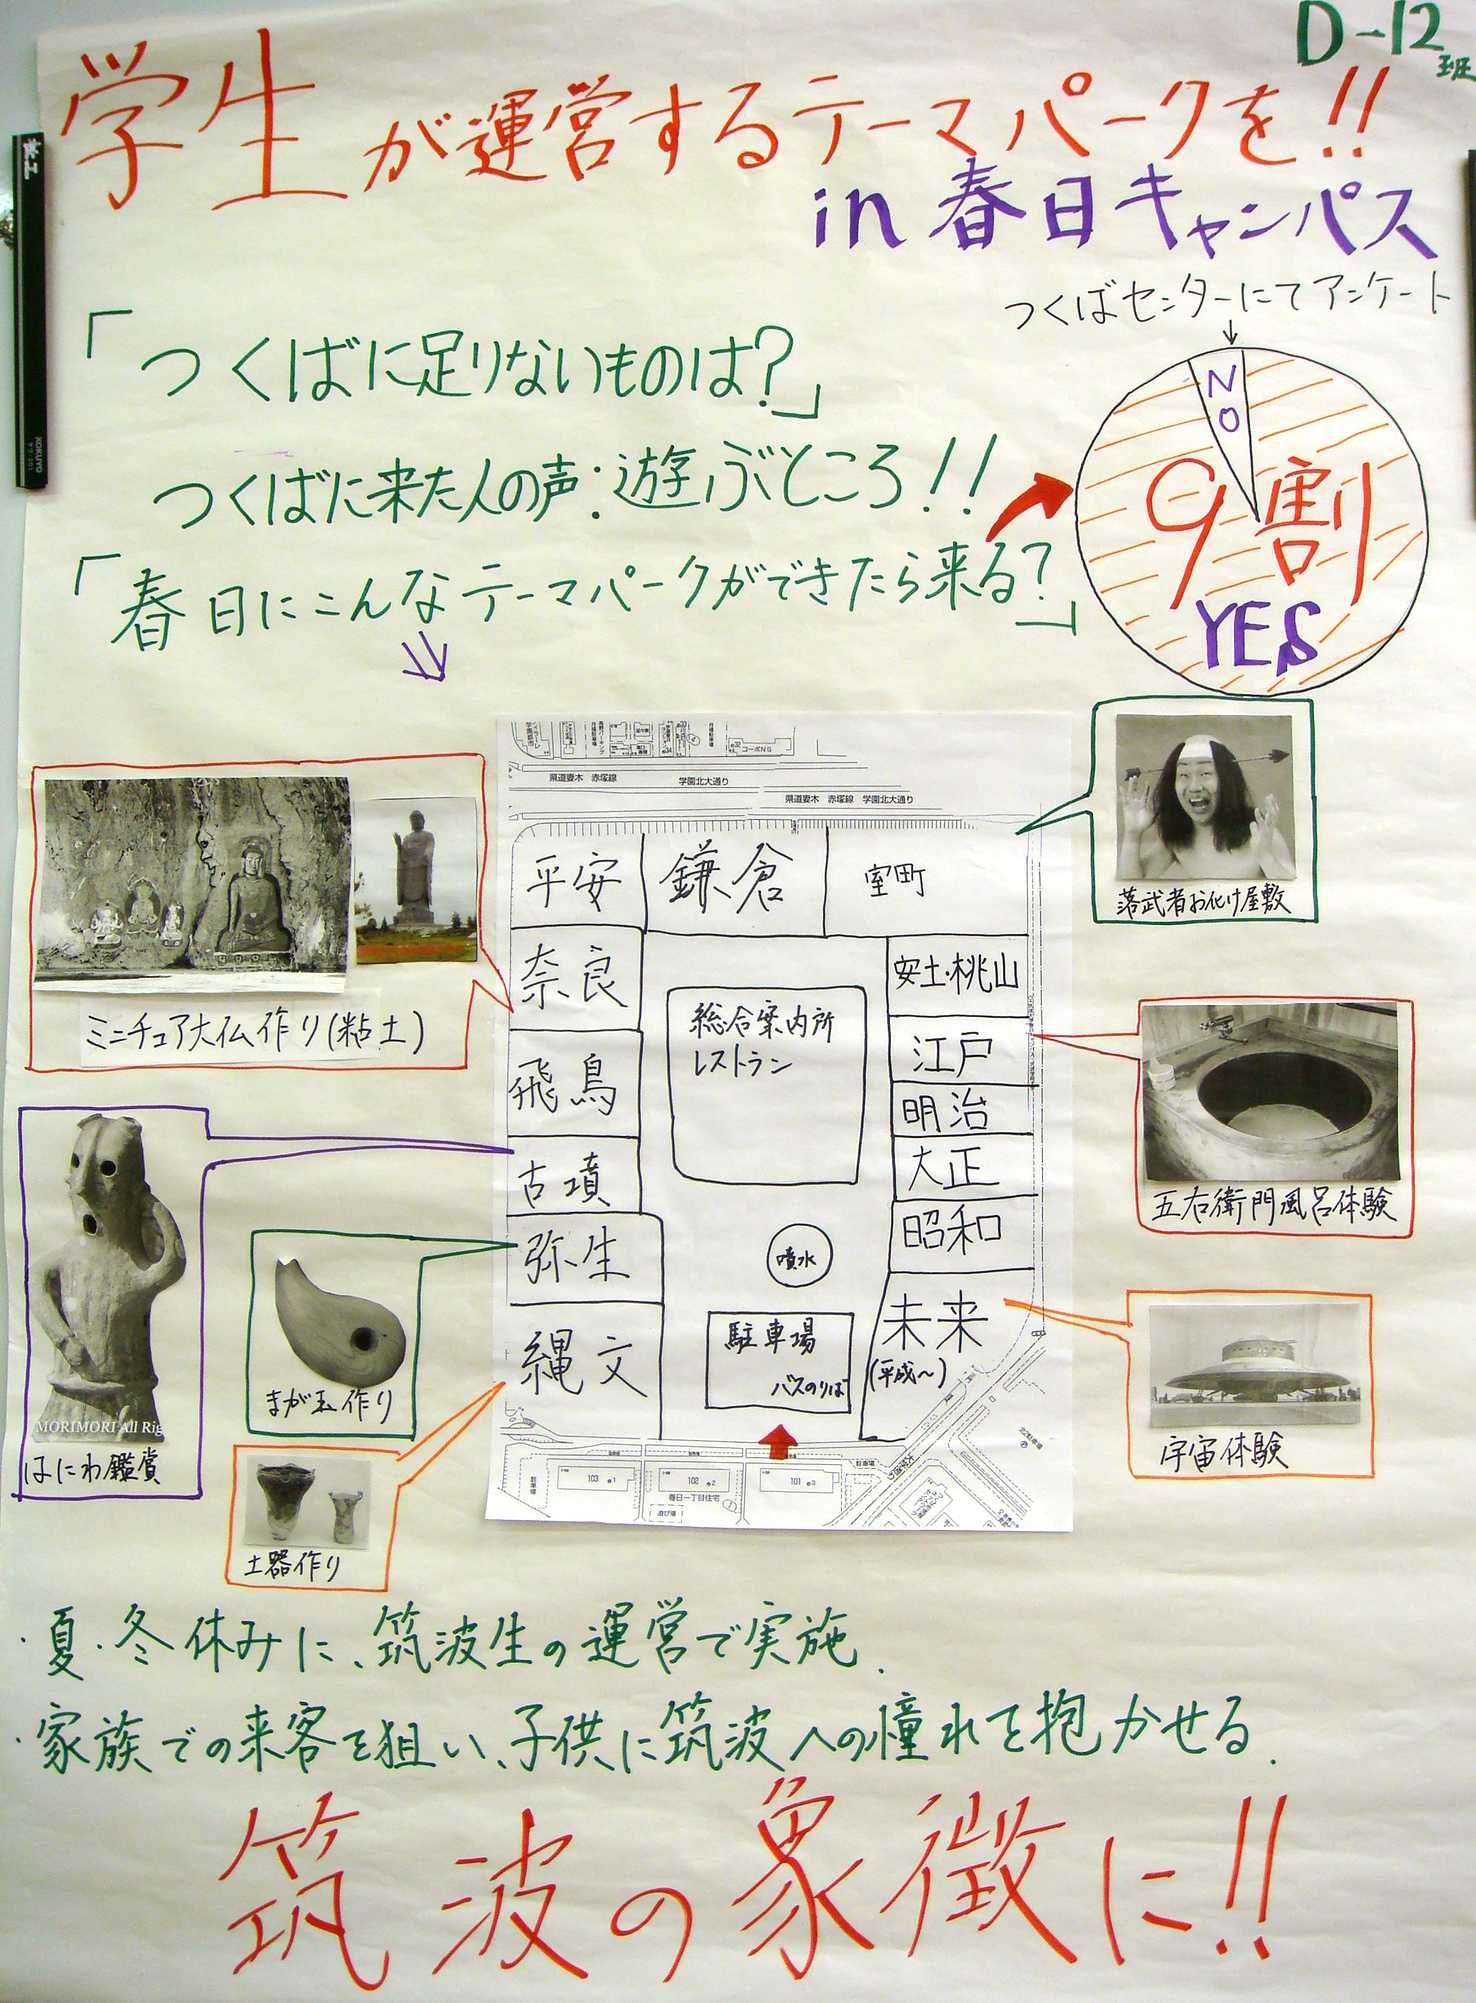 D-12班
学生が運営するテーマパークを!!
in 春日キャンパス
つくばセンターにてアンケート
「つくばに足りないものは?」
つくばに来た人の声:遊ぶところ!!
「春日にこんなテーマパークができたら来る?」
NO
9割
YES
県道妻木 赤塚線 学園北大通り
県道妻木 赤塚線 学園北大通り
コーポNG
平安
鎌倉
室町
奈良
飛鳥
古墳
弥生
縄文
総合案内所
レストラン
噴水
駐車場
バスのりば
安土・桃山
江戸
明治
大正
昭和
未来
(平成〜)
103
102
101
春日一丁目住宅
遊び場
駐車場
落武者お化け屋敷
五右衛門風呂体験
宇宙体験
ミニチュア大仏作り(粘土)
MORIMORI All Rig
はにわ鑑賞
まが玉作り
土器作り
・夏・冬休みに、筑波生の運営で実施.
・家族での来客を狙い、子供に筑波への憧れを抱かせる.
筑波の象徴に!!
KOKUYO